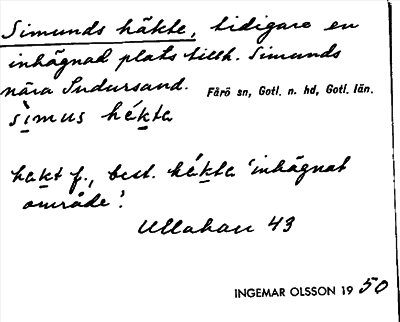 Simunds häkte, tidigare en
inhägnad plats tillh. Simunds
nära Sudursand. Fårö sn, Gotl. n. hd, Gotl. län.
sìmus hékta
hakt f., best. hékta 'inhägnat
område'.
Ullahau 43
INGEMAR OLSSON 19 50